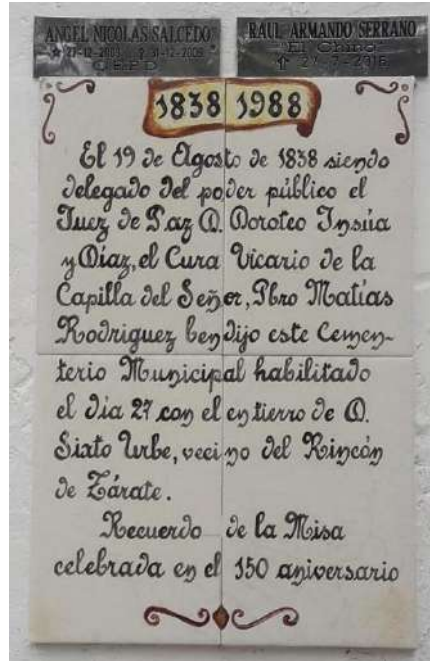 ANGEL NICOLÁS SALCEDO
Q.E.P.D
RAUL ARMANDO SERRANO
"El Chino"
1838 1988
El 19 de Agosto de 1838 siendo
delegado del poder público el
Juez de Paz D. Doroteo Insúa
y Díaz, el Cura Vicario de la
Capilla del Señor, Pbro Matías
Rodriguez bendijo este Cemen-
terio Municipal habilitado
el día 27 con el entierro de D.
Sixto Urbe, vecino del Rincón
de Zárate.
Recuerdo de la Misa
celebrada en el 150 aniversario